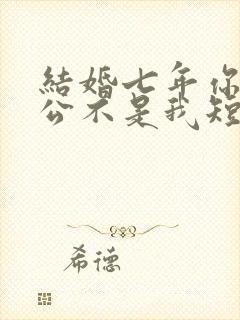 結婚七年你
公不是我短
希德